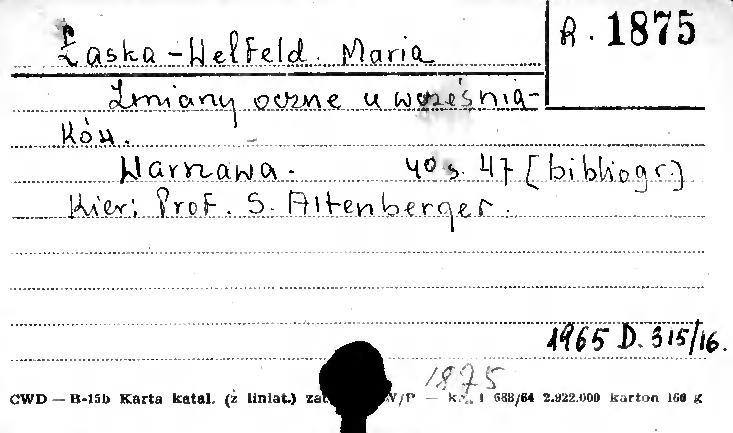 R. 1875
Łaska-Welfeld Maria
Zmiany oczne u wcześnia-
ków.
Warszawa. 40 s. 47 [bibliogr.]
Kier: Prof. S. Altenberger.
1965 D. 315/16.
1875
CWD — B-15b Karta katal. (z liniat.) W/P — 1 688/64 2.922.000 karton 160 g